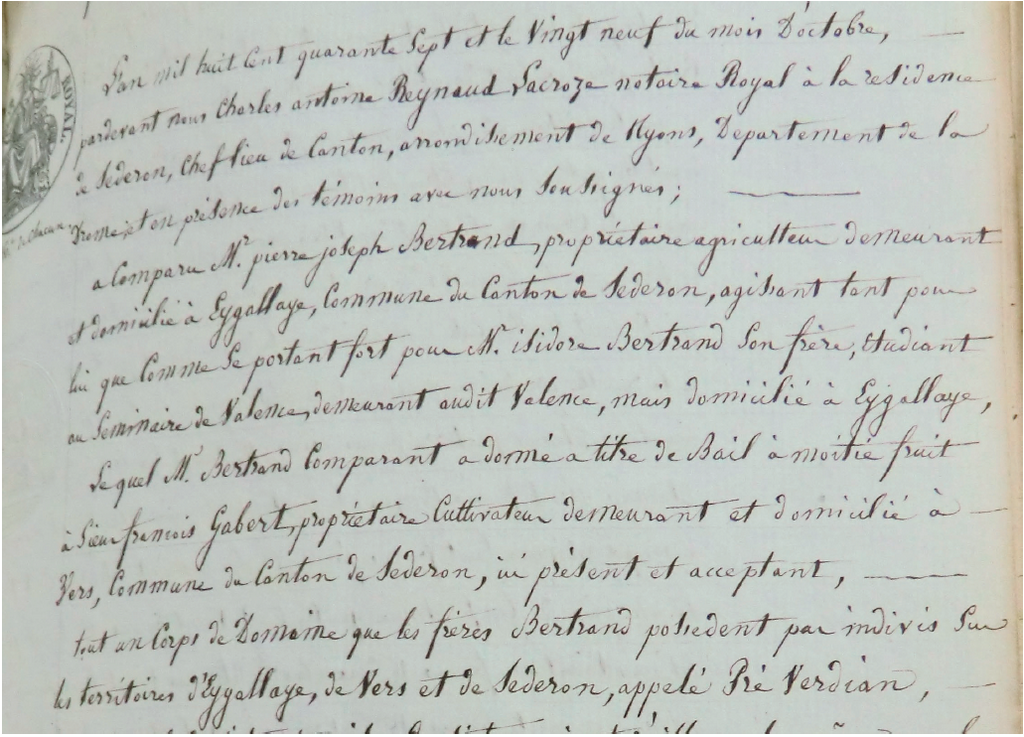 ROYAL.
L'an mil huit Cent quarante Sept et le Vingt neuf du mois D'octobre,
pardevant nous Charles antoine Reynaud Lacroze notaire Royal à la residence
de Sederon, Chef lieu de Canton, arrondissement de Nyons, Departement de la
Drome, et en présence des témoins avec nous Soussignés;
a Comparu Mr. pierre joseph Bertrand, propriétaire agriculteur demeurant
et domicilié à Eygallaye, Commune du Canton de Sederon, agissant tant pour
lui que Comme Se portant fort pour Mr. isidore Bertrand Son frère, Etudiant
au Seminaire de Valence, demeurant audit Valence, mais domicilié à Eygallaye,
Lequel Mr. Bertrand Comparant a donné a titre de Bail à moitié fruit
à Sieur françois Gabert, propriétaire Cultivateur demeurant et domicilié à
Vers, Commune du Canton de Sederon, ici présent et acceptant,
tout un Corps de Domaine que les frères Bertrand possedent par indivis Sur
les territoires d'Eygallaye, de Vers et de Sederon, appelé Pré Verdian,